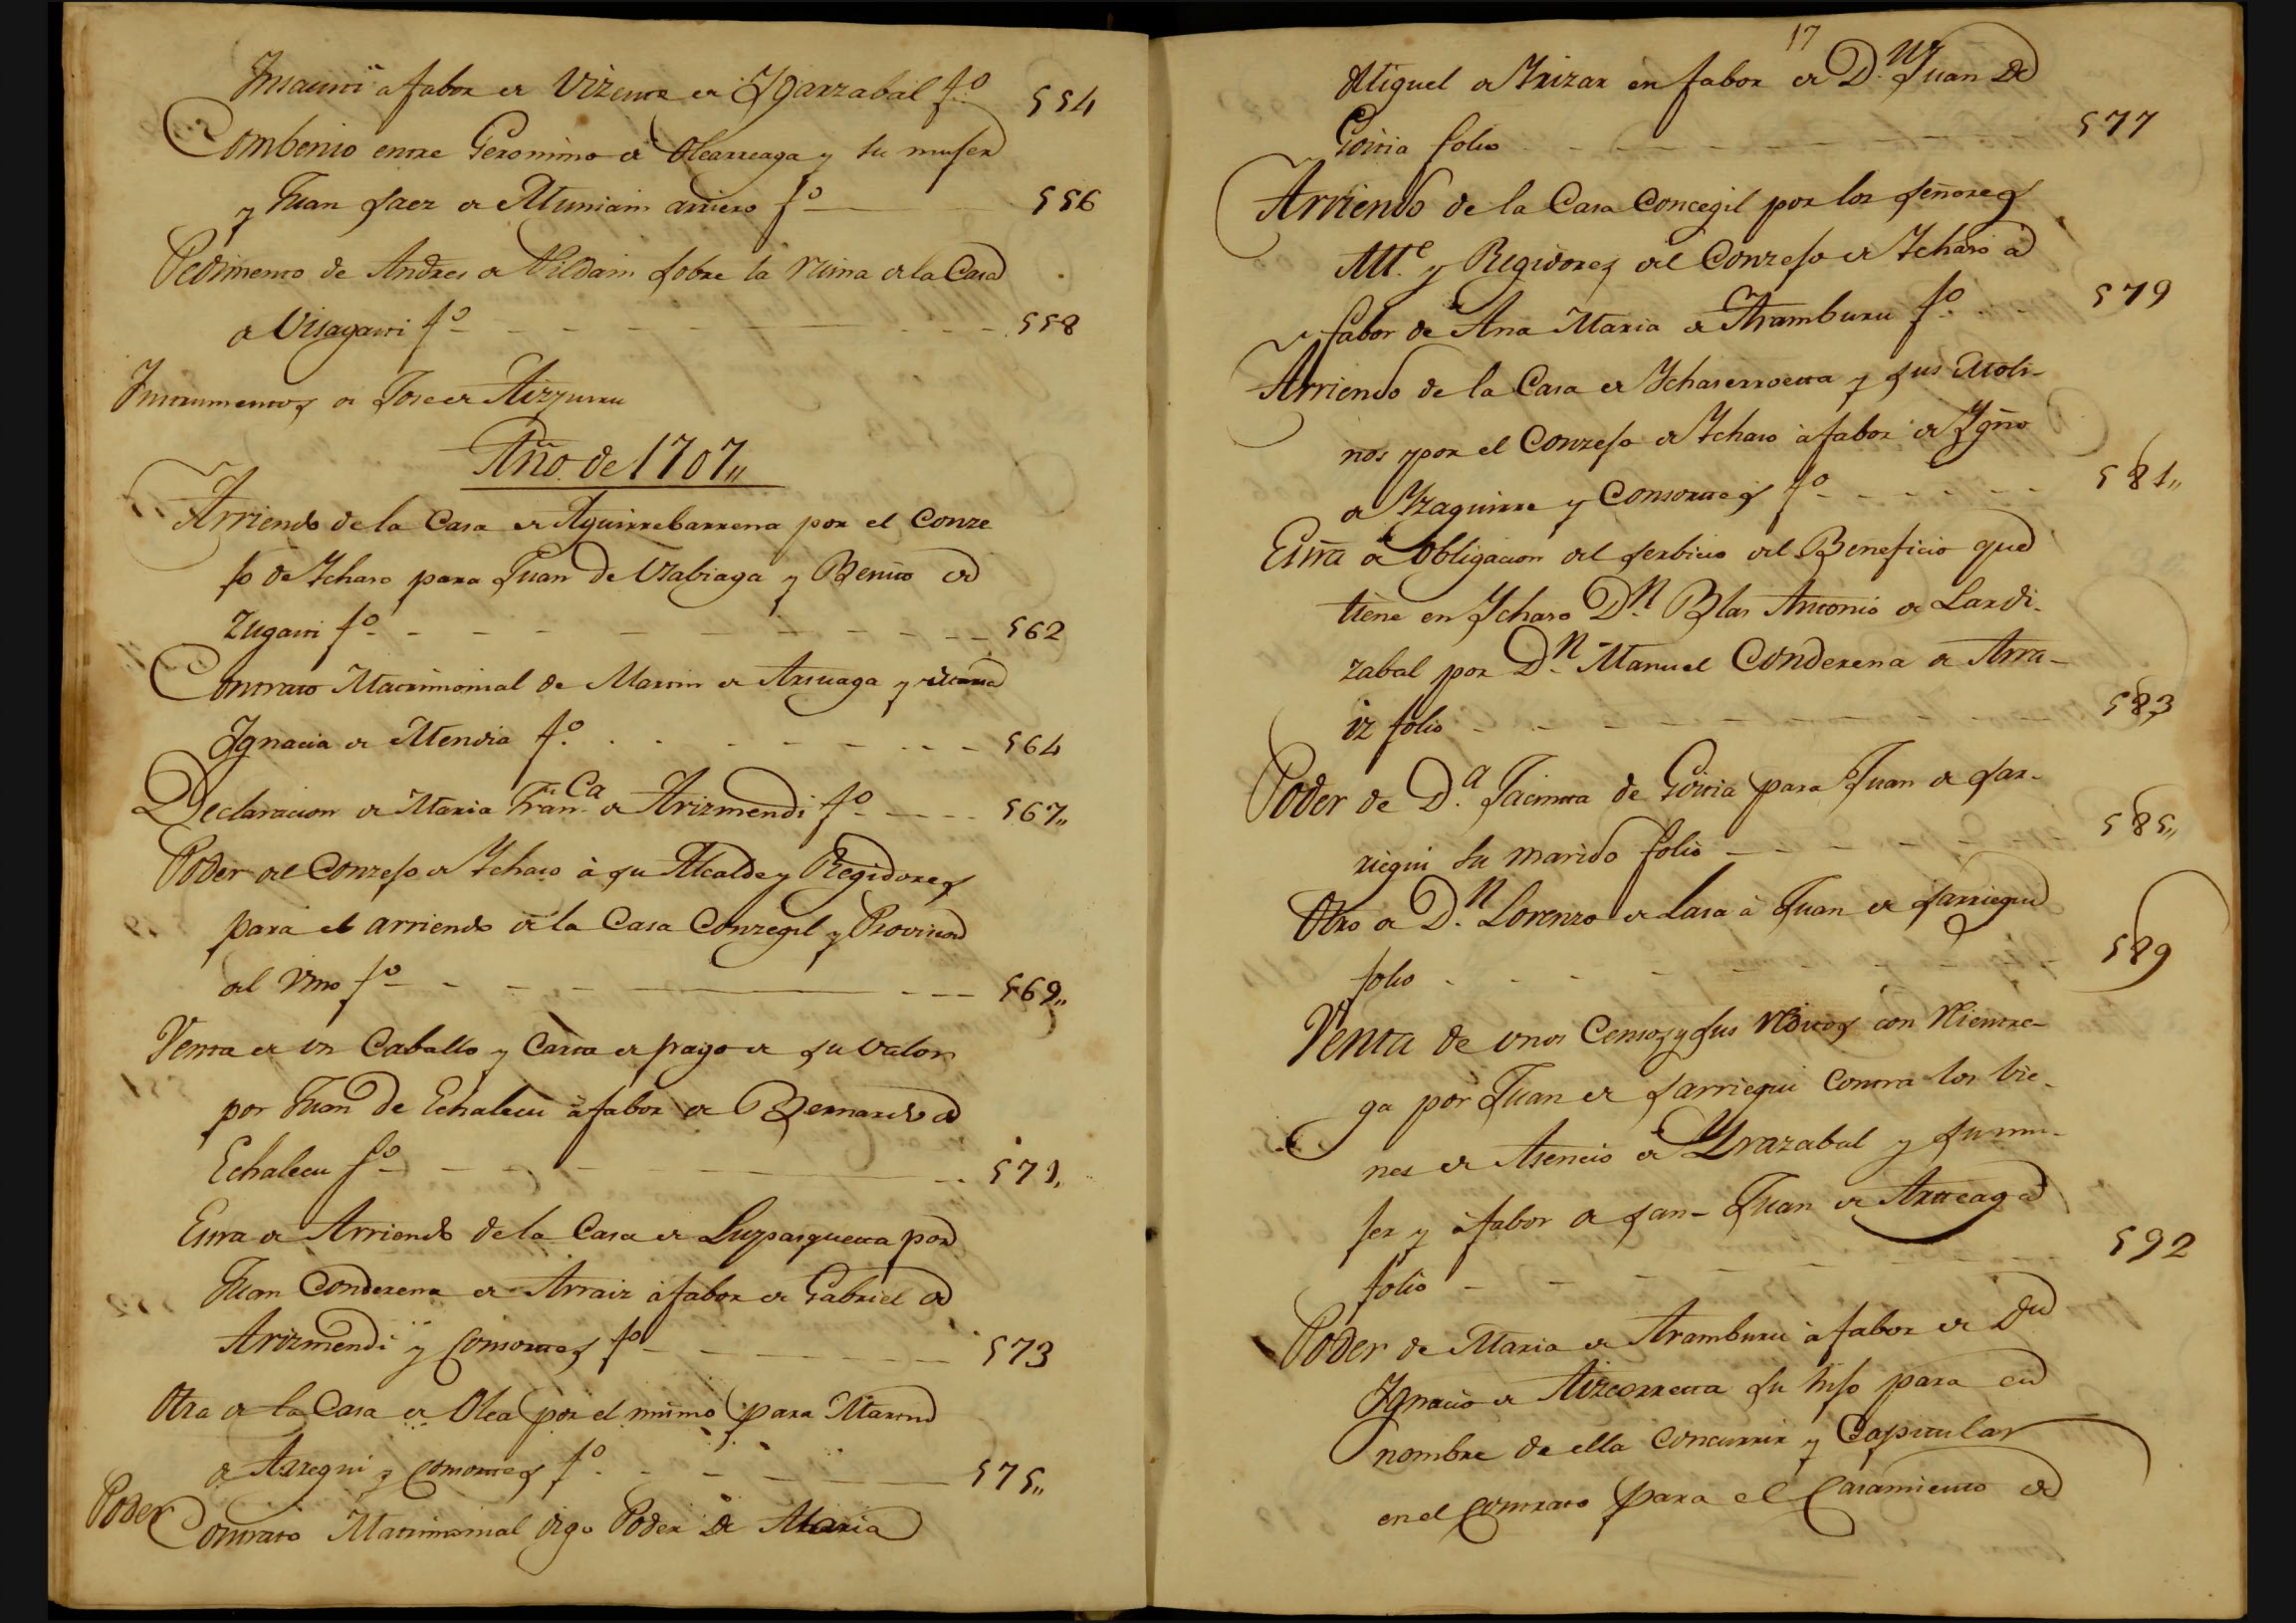 Insausti â fabor de Vizente de Ygarzabal f.º 554
Combenio entre Geronimo de Olearreaga y su muger
y Juan Saez de Muniain arriero fº 556
Pedimento de Andres de Vildain sobre la ruina de la Casa
de Visagasti fº 558
Instrumentos de Jose de Aizpurru
Año de 1707,,
Arriendo de la Casa de Aguirrebarrena por el Conze
jo de Ychaso para Juan de Vzabiaga y Benito de
Zugasti fº 562
Contrato Matrimonial de Martin de Arsuaga y Maria
Ignacia de Mendia fº 564
Declaracion de Maria Fran.Ca de Arizmendi fº 567,,
Poder del Conzejo de Ychaso â su Alcalde y Regidores
para el arriendo de la Casa Conzegil y Provision
del vino fº 569,,
Venta de un Caballo y Carta de pago de su valor
por Juan de Echalecu â fabor de Bernardo de
Echalecu fº 571,
Essra de Arriendo de la Casa de Luzpasguetta por
Juan Conderena de Arraiz â fabor de Gabriel de
Arizmendi y Consortes fº 573
Otra de la Casa de Olea por el mismo para Martin
de Azregui y Consortes fº 575,,
Poder
Contrato Matrimonial digo Poder de Maria
17
Miguel de Yrizar en fabor de D.N Juan de
Goitia folio 577
Arriendo de la Casa Concegil por los Señores
Alt.e y Regidores del Conzejo de Ychaso â
fabor de Ana Maria de Aramburu fº 579
Arriendo de la Casa de Ychaserroetta y sus Moli-
nos por el Conzejo de Ychaso â fabor de Ygñio
de Yzaguirre y Consortes fº 581,,
Essra de Obligacion del serbicio del Beneficio que
tiene en Ychaso D.N Blas Antonio de Lardi-
zabal por D.N Manuel Conderena de Arra-
iz folio 583
Poder de D.a Jacinta de Goitia para Juan de Sar-
riegui su marido folio 585,,
Otro de D.N Lorenzo de Lasa â Juan de Sarriegui
folio 589
Venta de unos Censos y sus reditos con Vientre-
ga por Juan de Sarriegui Contra los bie-
nes de Asencio de Yrazabal y su mu-
jer y â fabor de San-Juan de Arteaga
folio 592
Poder de Maria de Aramburu â fabor de Dn
Ignacio de Aizcorretta su hijo para en
nombre de ella concurrir y Capitular
en el contrato para el Casamiento de